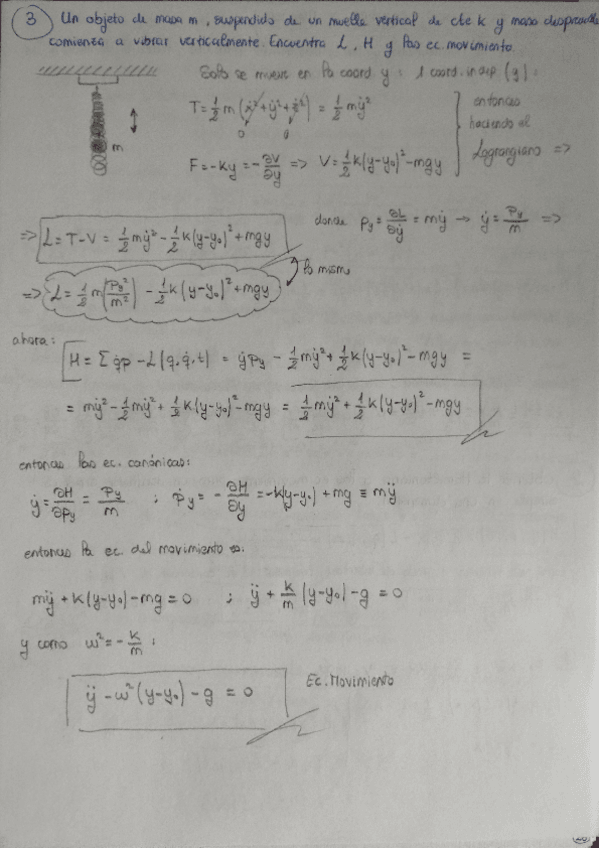 3 Un objeto de masa m, suspendido de un muelle vertical de cte k y masa despreciable
comienza a vibrar verticalmente. Encuentra L, H y las ec. movimiento.
Solo se mueve en la coord. y : 1 coord. indep. (y) :
T = 1/2 m (ẋ² + ẏ² + ż²) = 1/2 mẏ²
0 0
m
F = -ky = -∂V/∂y => V = 1/2 k(y-y₀)² - mgy
entonces
haciendo el
Lagrangiano =>
=> L = T-V = 1/2 mẏ² - 1/2 k(y-y₀)² + mgy
donde p_y = ∂L/∂ẏ = mẏ → ẏ = p_y/m =>
lo mismo
=> L = 1/2 m(p_y²/m²) - 1/2 k(y-y₀)² + mgy
ahora:
H = Σ q̇p - L(q, q̇, t) = ẏp_y - 1/2 mẏ² + 1/2 k(y-y₀)² - mgy =
= mẏ² - 1/2 mẏ² + 1/2 k(y-y₀)² - mgy = 1/2 mẏ² + 1/2 k(y-y₀)² - mgy
entonces las ec. canónicas:
ẏ = ∂H/∂p_y = p_y/m ; ṗ_y = -∂H/∂y = -k(y-y₀) + mg ≡ mÿ
entonces la ec. del movimiento es:
mÿ + k(y-y₀) - mg = 0 ; ÿ + k/m (y-y₀) - g = 0
y como ω² = -k/m :
ÿ - ω²(y-y₀) - g = 0
Ec. Movimiento